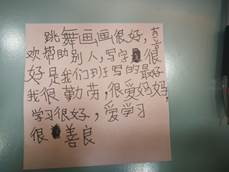 跳舞画画很好，喜
欢帮助别人，写字很
好是我们班写的最好
我很勤劳，很爱妈妈
学习很好，爱学习
很善良